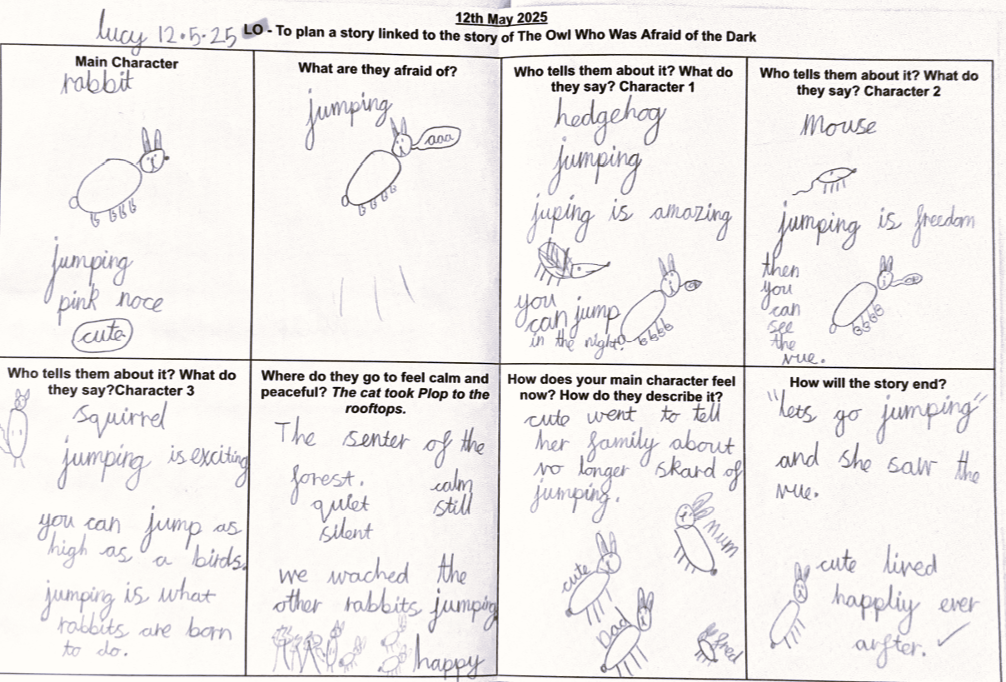 lucy 12.5.25
12th May 2025
LO - To plan a story linked to the story of The Owl Who Was Afraid of the Dark
Main Character
rabbit
jumping
pink noce
cute
What are they afraid of?
jumping
aaa
Who tells them about it? What do
they say? Character 1
hedgehog
jumping
juping is amazing
you
can jump
in the night.
Who tells them about it? What do
they say? Character 2
Mouse
jumping is freedom
then
you
can
see
the
vue.
Who tells them about it? What do
they say?Character 3
squirrel
jumping is exciting
you can jump as
high as a birds.
jumping is what
rabbits are born
to do.
Where do they go to feel calm and
peaceful? The cat took Plop to the
rooftops.
The senter of the
forest. calm
quiet still
silent
we wached the
other rabbits jumping
happy
How does your main character feel
now? How do they describe it?
cute went to tell
her family about
no longer skard of
jumping.
Mum
cute
Dad
fred
How will the story end?
"lets go jumping"
and she saw the
vue.
cute lived
happliy ever
arfter.